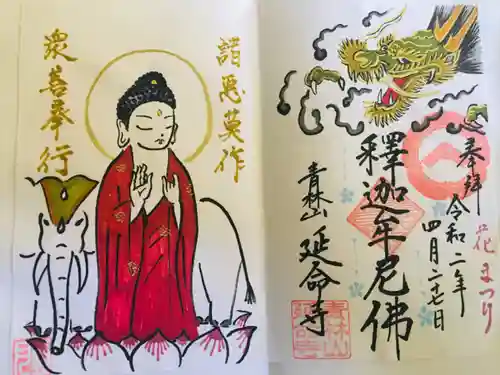 諸悪莫作
衆善奉行
花まつり
奉拝
令和二年
四月二十七日
釋迦牟尼佛
青林山
延命寺